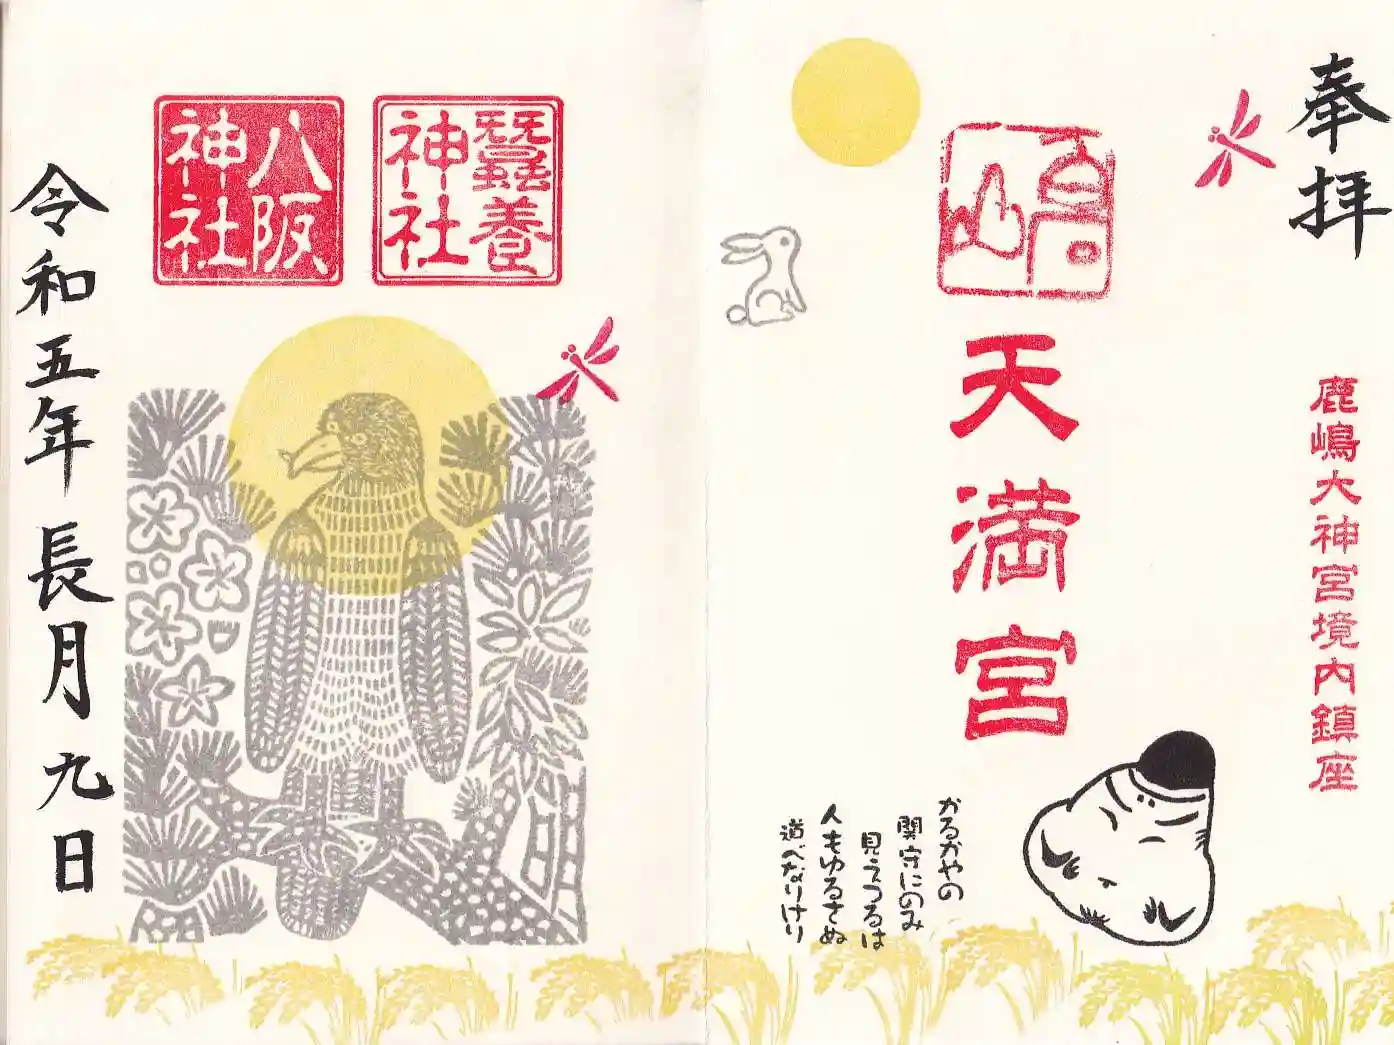 奉拝
鹿嶋大神宮境内鎮座
天満宮
かるかやの
関守にのみ
見えつるは
人もゆるさぬ
道べなりけり
蠶養
神社
八阪
神社
令和五年長月九日